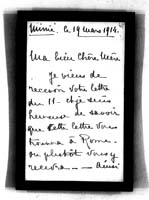 Mimi, le 19 mars 1914.
Ma bien Chère Mère
Je viens de
recevoir votre lettre
du 11 - et je suis
heureuse de savoir
que cette lettre vous
trouvera à Rome.
ou plutôt vous y
recevra — Ainsi